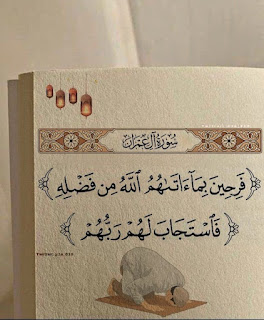 سُورَةُ آلِ عِمْرَانَ
﴿فَرِحِينَ بِمَآ ءَاتَىٰهُمُ ٱللَّهُ مِن فَضْلِهِۦ﴾
﴿فَٱسْتَجَابَ لَهُمْ رَبُّهُمْ﴾